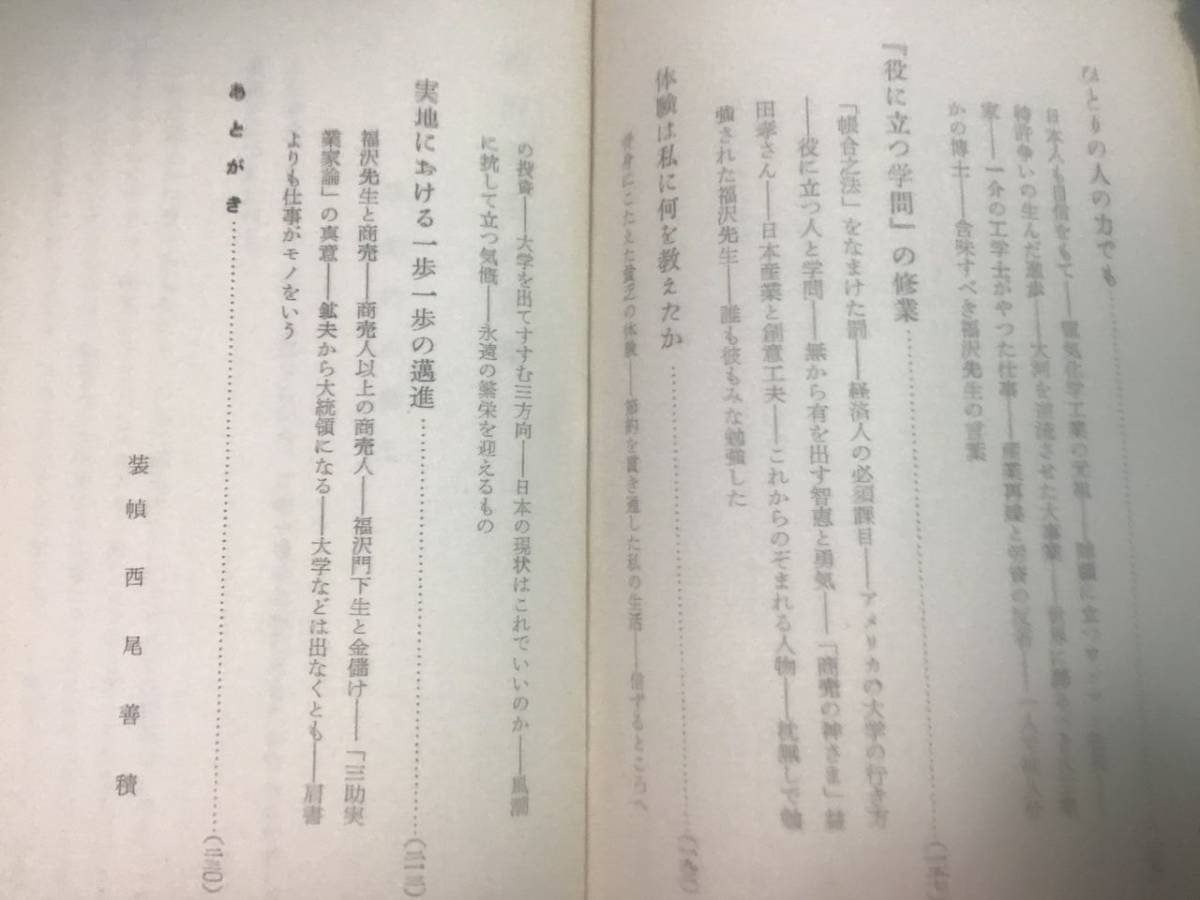 ひとりの人の力でも……
日本人も自信をもて――電気化学工業の
特許争いの生んだ進歩――大河を逆流させた大事業――世界に誇るべき
家――一介の工学士がやつた仕事――産業再建と労資の
かの博士――含味すべき福沢先生の言葉
『役に立つ学問』の修業……
「帳合之法」をなまけた罰――経済人の必須課目――アメリカの大学の行き方
――役に立つ人と学問――無から有を出す智恵と勇気――「商売の神さま」益
田孝さん――日本産業と創意工夫――これからのぞまれる人物――枕職しで勉
強された福沢先生――誰も彼もみな勉強した
体験は私に何を教えたか……（一九三）
骨身にこたえた貧乏の体験――節約を貫き通した私の生活――信ずるところへ
の投資――大学を出てすすむ三方向――日本の現状はこれでいいのか――風潮
に抗して立つ気慨――永遠の繁栄を迎えるもの
実地における一歩一歩の邁進……（二一三）
福沢先生と商売――商売人以上の商売人――福沢門下生と金儲け――「三助実
業家論」の真意――鉱夫から大統領になる――大学などは出なくとも――肩書
よりも仕事がモノをいう
あとがき……（二三〇）
装幀 西尾善積